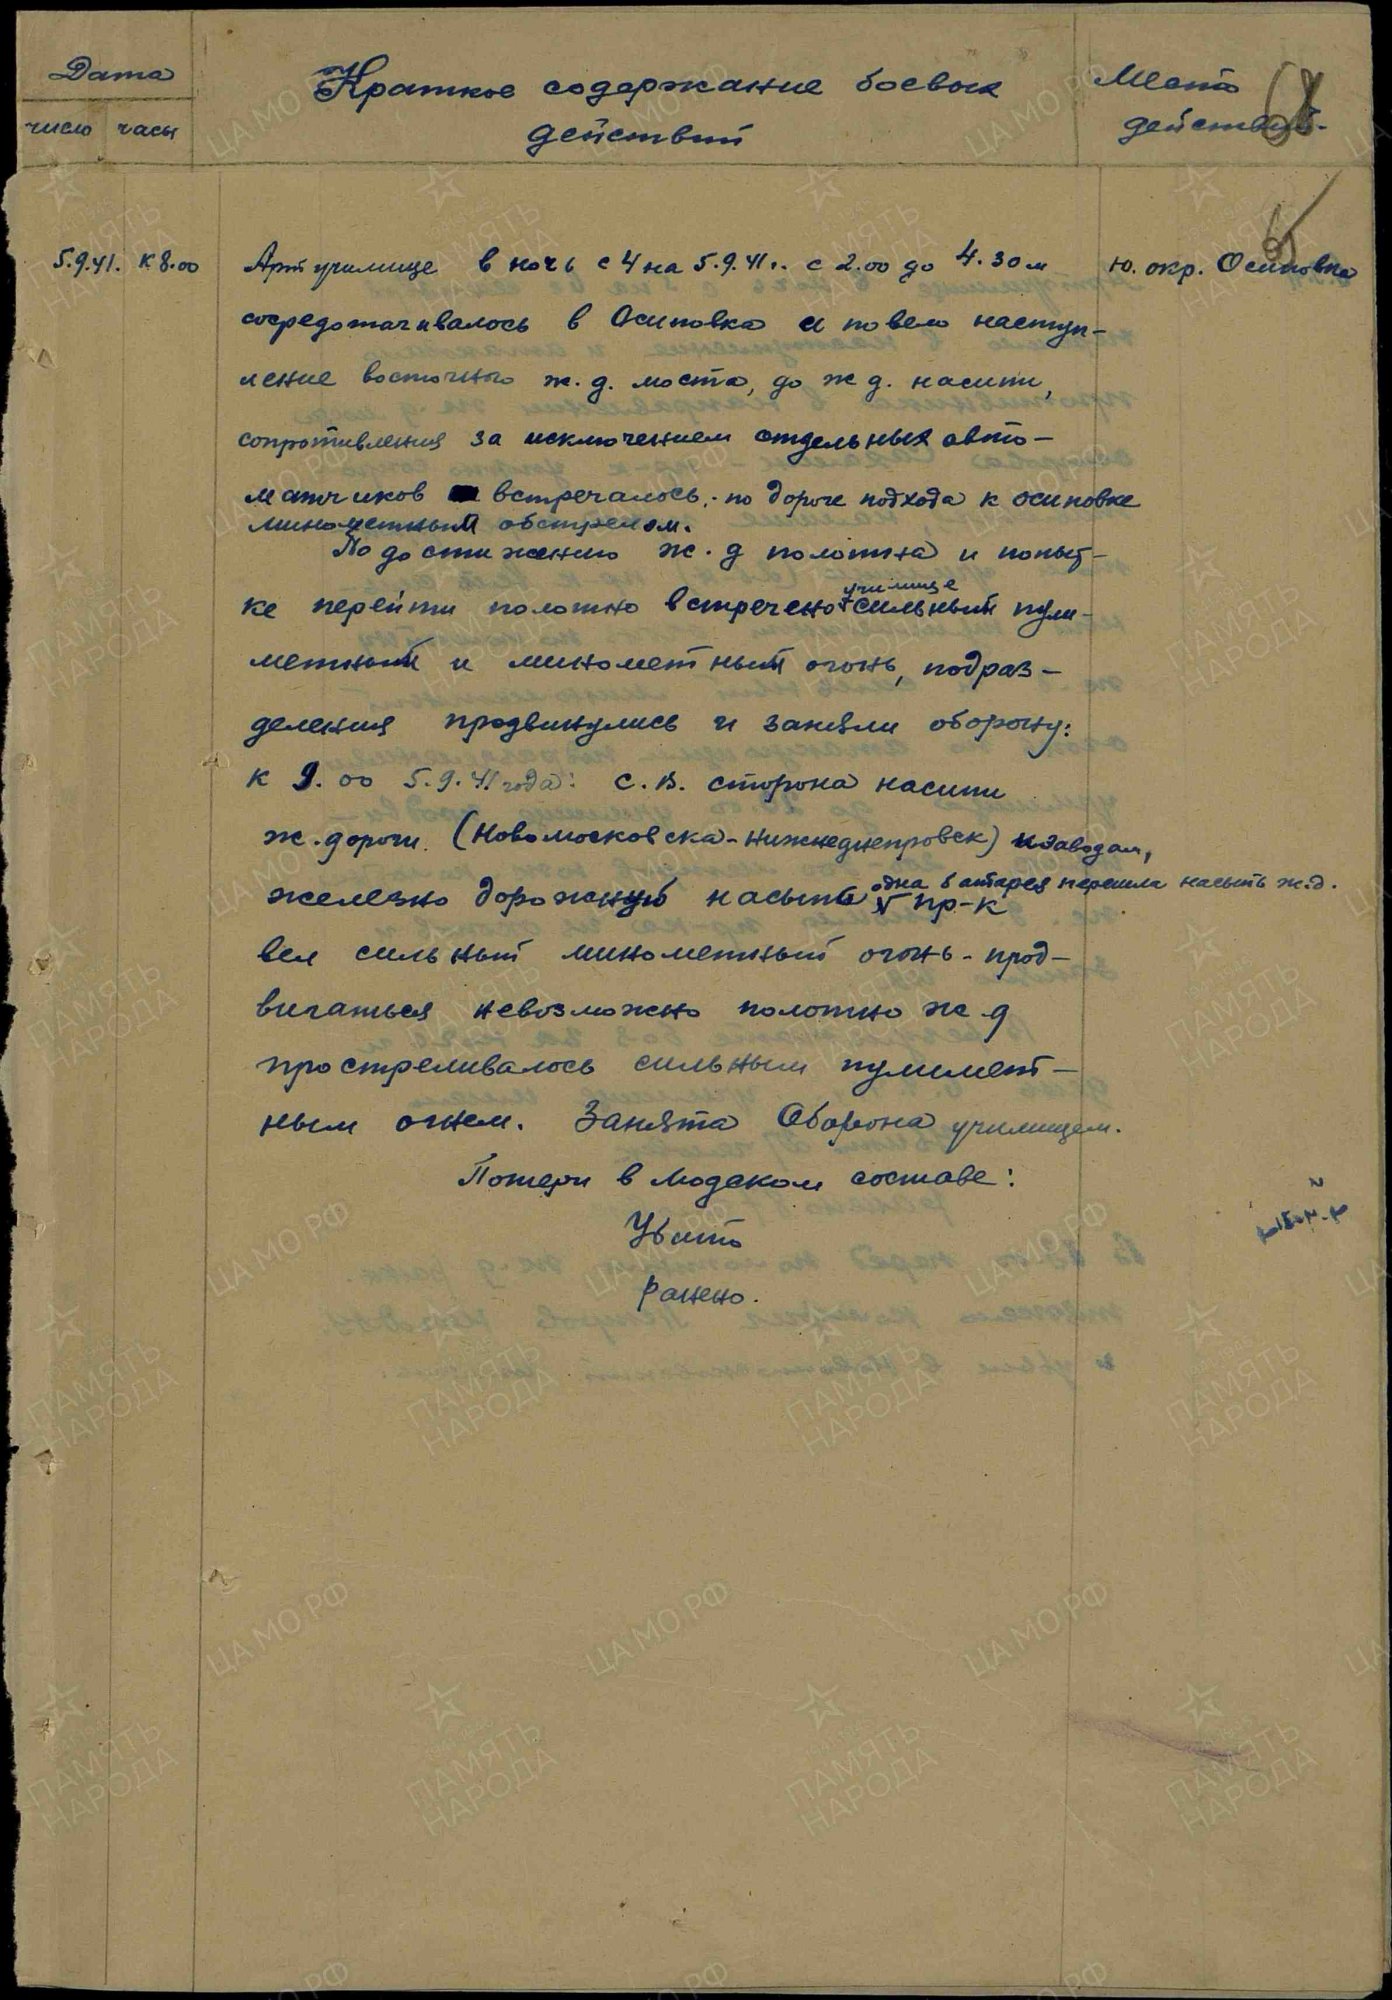 Дата
Краткое содержание боевых
Место
число часы
действий
действий.
5.9.41. к 8.00 Артучилище в ночь с 4 на 5.9.41г. с 2.00 до 4.30 м ю. окр. Осиповка
сосредотачивалось в Осиповка и повело наступ-
ление восточнюю ж.д. моста, до ж д. насыпи,
сопротивления за исключением отдельных авто-
матчиков встречалось. по дороге подхода к осиповке
минометный обстрелом.
По достижению ж.д полотна и попыт-
училище
ке перейти полотно встречено сильный пули-
метный и минометный огонь, подраз-
деления продвинулись и заняли оборону:
к 9.00 5.9.41 года: с.в. сторона насыпи
ж.дороги (Новомосковска-Нижнеднепровск) и заводам,
одна батарея перешла насыпь ж.д.
железно дорожную насыпь V пр-к
вел сильный минометный огонь - прод-
вигаться невозможно полотно ж.д
простреливалось сильным пулимет-
ным огнем. Занята Оборона училищем.
Потери в людском составе:
Убито
Ранено.
ЦАМО РФ
ПАМЯТЬ
НАРОДА